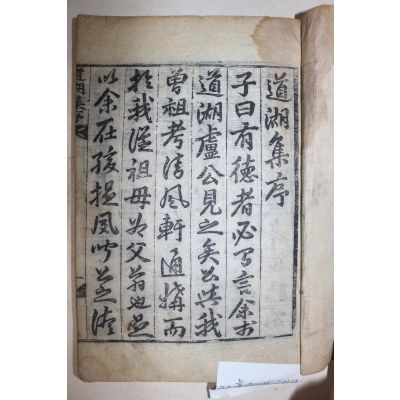 道湖集序
子曰有德者必有言余扵
道湖盧公見之矣公與我
曾祖考清風軒通媾而
扵我從祖母為父翁也是
以余在孩提風公之
道湖集序